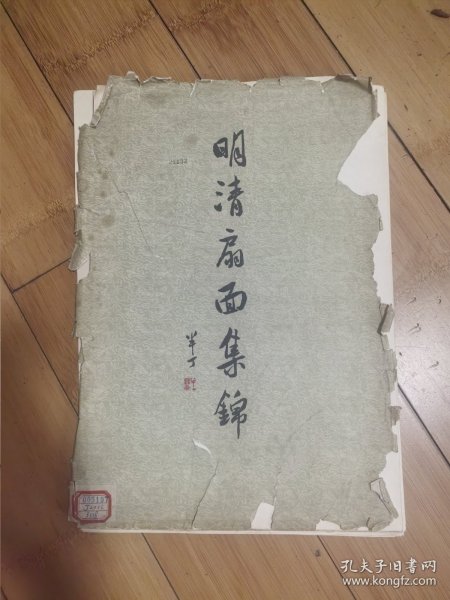 明清扇面集錦
半丁
孔夫子旧书网
www.kongfz.com